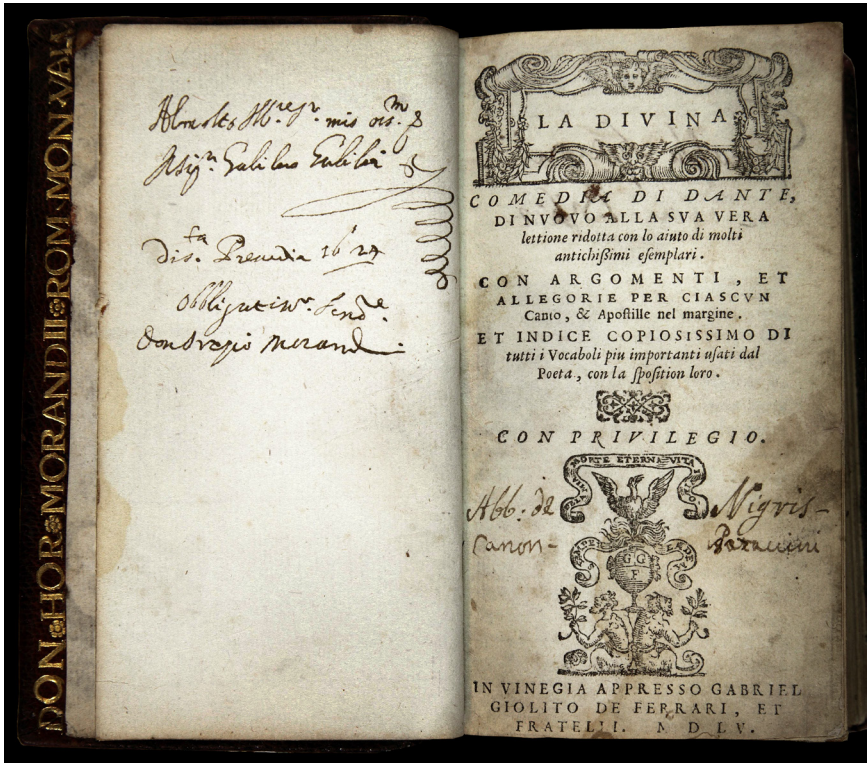 DON HOR MORANDII ROM MON VALL
Al molto Ill.re Sr. mio oss.mo
Il Sigr. Galileo Galilei
Prenedia 1624
Obbligatiss.
Don Orazio Morandi
LA DIVINA
COMEDIA DI DANTE,
DI NVOVO ALLA SVA VERA
lettione ridotta con lo aiuto di molti
antichißimi eſemplari.
CON ARGOMENTI, ET
ALLEGORIE PER CIASCVN
Canto, & Apoſtille nel margine.
ET INDICE COPIOSISSIMO DI
tutti i Vocaboli piu importanti uſati dal
Poeta, con la ſpoſition loro.
CON PRIVILEGIO.
MORTE ETERNA VITA
Abb. de Nigris
Canon-
SEMPER EADEM
GGF
IN VINEGIA APPRESSO GABRIEL
GIOLITO DE FERRARI, ET
FRATELLI. M D LV.